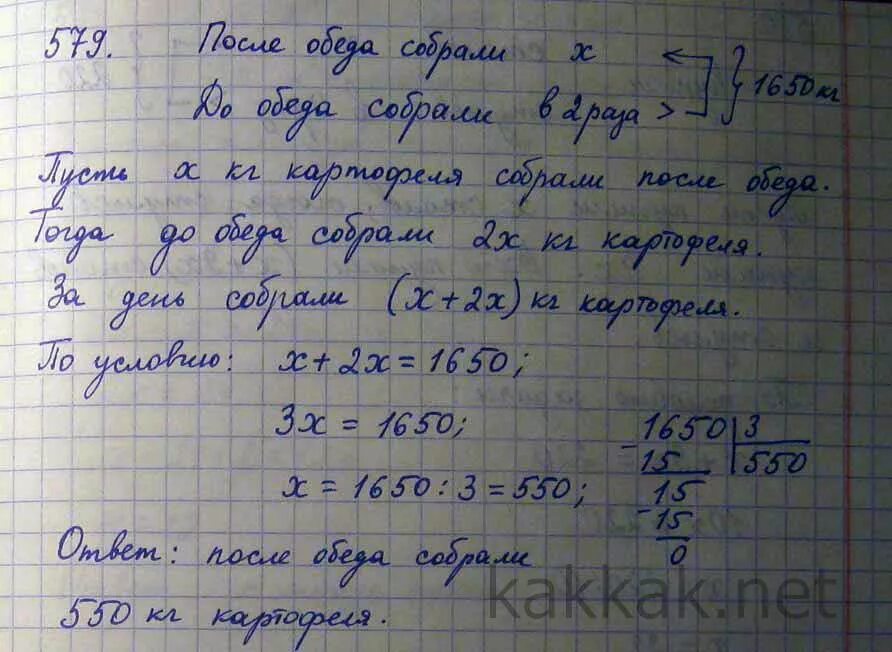 579. После обеда собрали x
До обеда собрали в 2 раза > } 1650 кг
Пусть x кг картофеля собрали после обеда.
Тогда до обеда собрали 2x кг картофеля.
За день собрали (x + 2x) кг картофеля.
По условию: x + 2x = 1650;
3x = 1650;
x = 1650 : 3 = 550;
1650 | 3
- 15 | 550
15
- 15
0
Ответ: после обеда собрали
550 кг картофеля.
kakkak.net